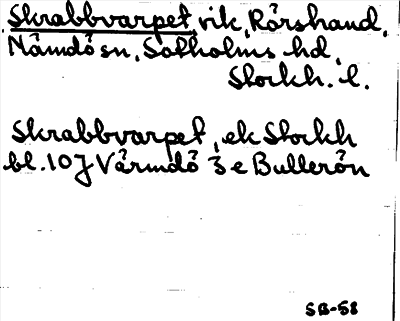 Skrabbvarpet, vik, Rörshand,
Nämdö sn, Sotholms hd,
Stockh. l.
Skrabbvarpet, ek Stockh
bl. 107 Värmdö 3 e Bullerön
SB-58